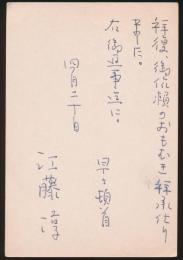 拝復 御依頼のおもむき拝承仕り
ました。
右御返事迄に。
早々頓首
四月二十日
江藤淳